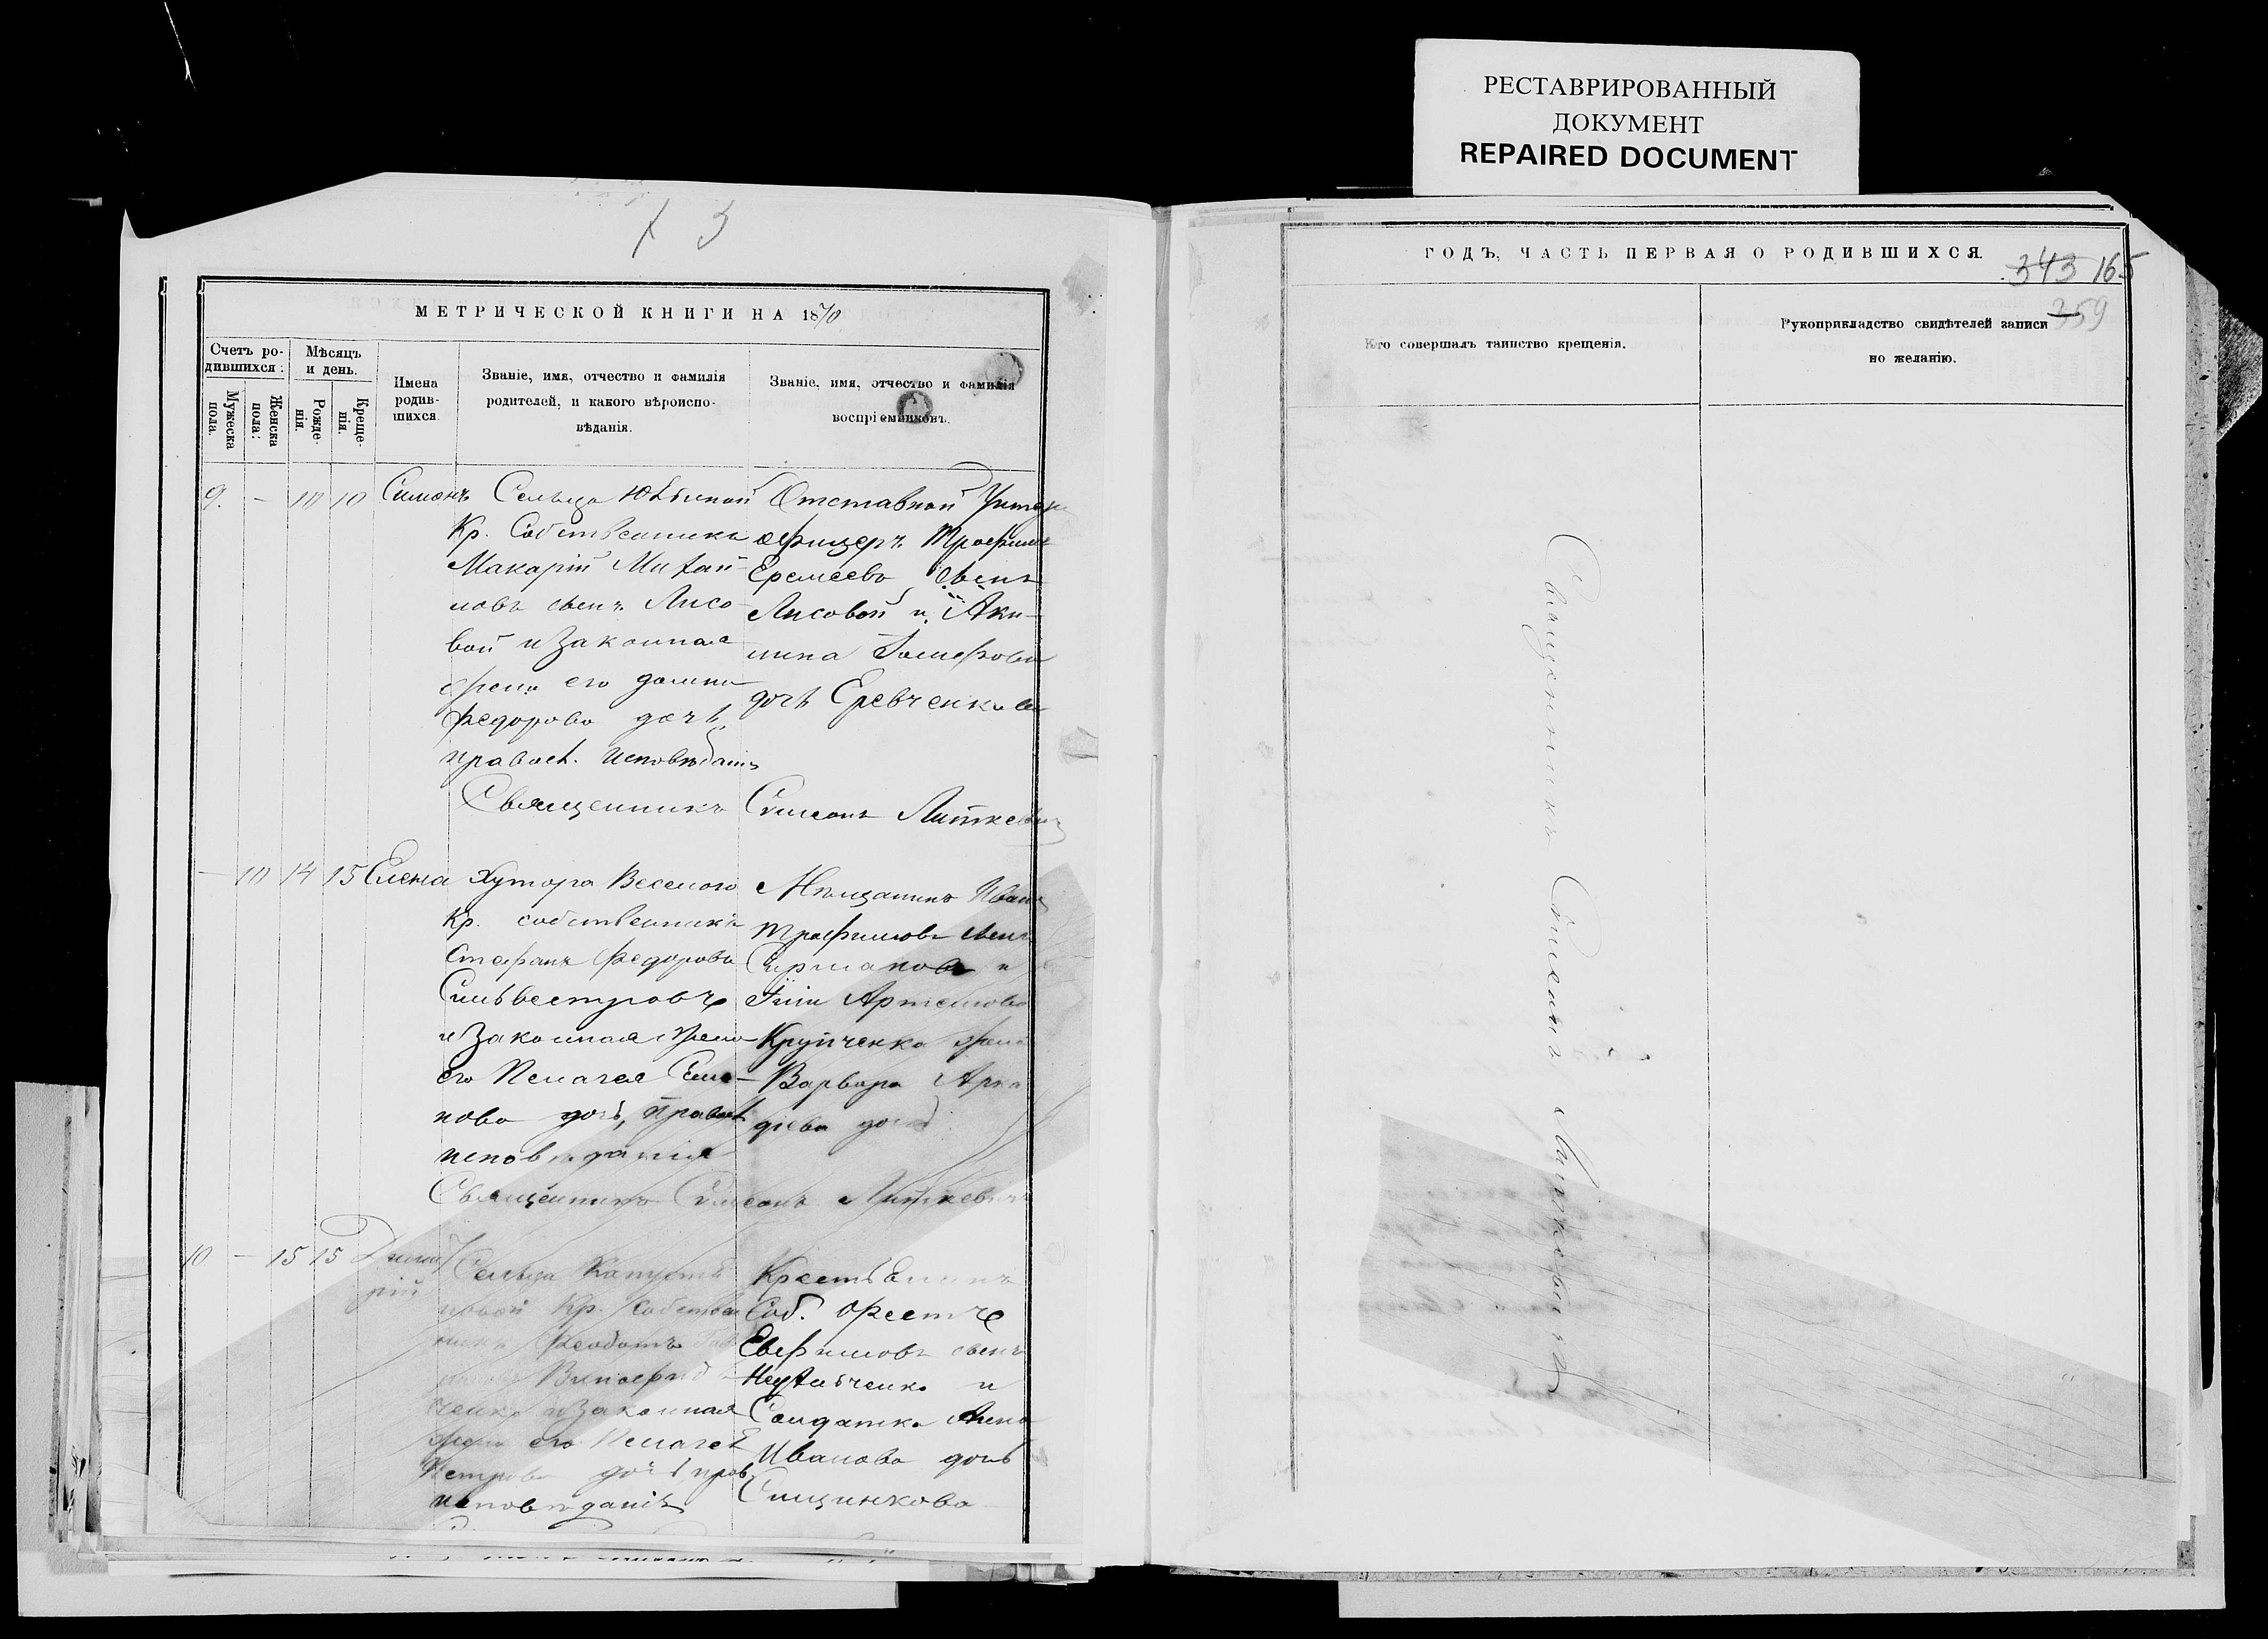 РЕСТАВРИРОВАННЫЙ
ДОКУМЕНТ
REPAIRED DOCUMENT
МЕТРИЧЕСКОЙ КНИГИ НА 1870
Счетъ ро-
дившихся.
Мужеска
пола.
Женска
пола.
Мѣсяцъ
и день.
Рожде-
нія.
Креще-
нія.
Имена
родив-
шихся.
Званіе, имя, отчество и фамилія
родителей, и какого вѣроиспо-
вѣданія.
Званіе, имя, отчество и фамилія
воспріемниковъ.
9. - 10 10 Симонъ
Сельца
Кр. Собственникъ
Макарій Михай-
ловъ сынъ Лисо-
вой и законная
жена его
Федорова дочь
правос. исповѣданія
Отставной Унтеръ
офицеръ Трофимъ
Еремеевъ сынъ
Лисовой и Аки-
лина
дочь
Священникъ Симеонъ Литкевичъ
- 10 14 15 Елена
Хутора Веселого
Кр. собственникъ
Стефанъ Федоровъ
Сильвестровъ
и законная жена
его Пелагея Симо-
нова дочь, правос
исповѣданія
Мѣщанинъ Иванъ
Трофимовъ сынъ
и
Артемова
Крупченко жена
Варвара Арка
діева дочь
Священникъ Симеонъ Литкевичъ
10 - 15 15 Дмит
рій
Сельца Капуст
новой Кр. Собствен
никъ Феодотъ
ченко и законная
жена его Пелагея
Петрова дочь, прав
исповѣданія
Крестьянинъ
Соб. Орестъ
Евфимовъ сынъ
и
Солдатка Анна
Иванова дочь
Сищинкова
ГОДЪ, ЧАСТЬ ПЕРВАЯ О РОДИВШИХСЯ.
343 165
359
Кто совершалъ таинство крещенія.
Рукоприкладство свидѣтелей записи
по желанію.
Священникъ Симеонъ Литкевичъ